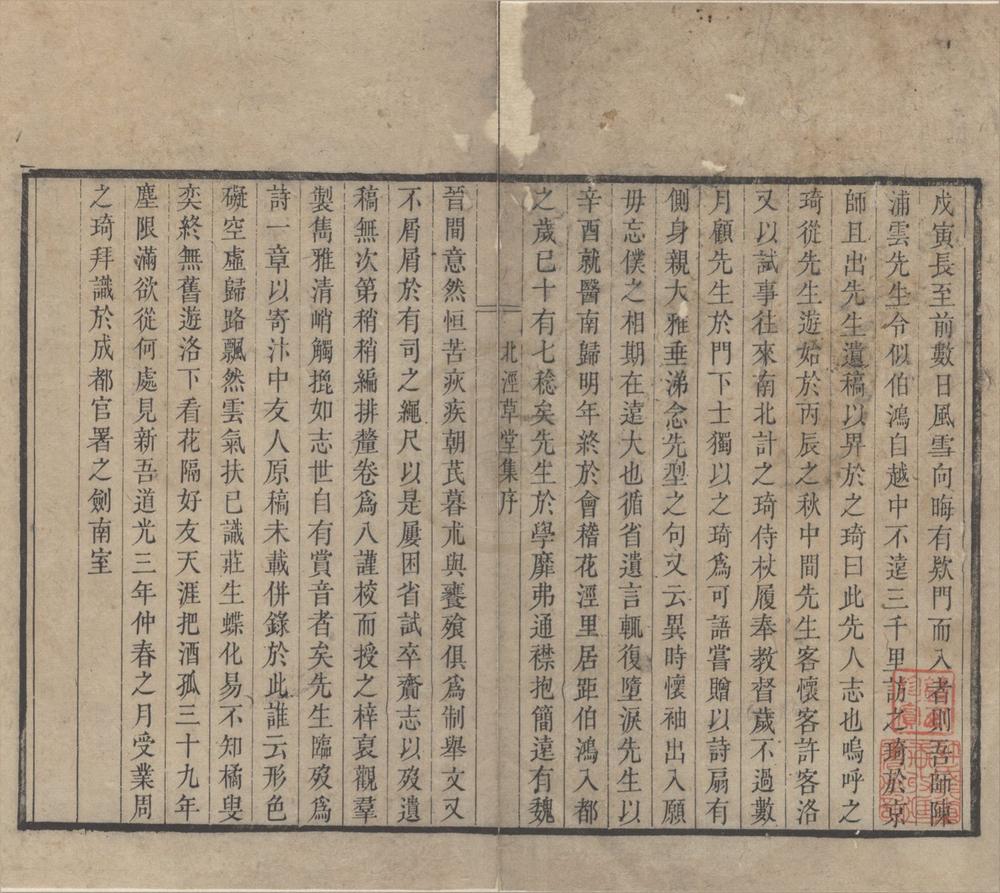 戊寅長至前數日風雪向晦有欵門而入者則吾師陳
浦雲先生令似伯鴻自越中不遠三千里訪之琦於京
師且出先生遺稿以畀於之琦曰此先人志也嗚呼之
琦從先生遊始於丙辰之秋中間先生客懷客許客洛
又以試事往來南北計之琦侍杖履奉教督歲不過數
月顧先生於門下士獨以之琦爲可語嘗贈以詩扇有
側身親大雅垂涕念先型之句又云異時懷袖出入願
毋忘僕之相期在遠大也循省遺言輒復墮淚先生以
辛酉就醫南歸明年終於會稽花涇里居距伯鴻入都
之歲已十有七稔矣先生於學靡弗通襟抱簡遠有魏
北涇草堂集序
晉間意然恒苦疢疾朝芪暮朮與饔飧俱爲制舉文又
不屑屑於有司之繩尺以是屢困省試卒齎志以歿遺
稿無次第稍稍編排釐卷爲八謹校而授之梓裒觀羣
製雋雅清峭觸㨗如志世自有賞音者矣先生臨歿爲
詩一章以寄汴中友人原稿未載併錄於此誰云形色
礙空虛歸路飄然雲氣扶已識莊生蝶化易不知橘叟
奕終無舊遊洛下看花隔好友天涯把酒孤三十九年
塵限滿欲從何處見新吾道光三年仲春之月受業周
之琦拜識於成都官署之劍南室